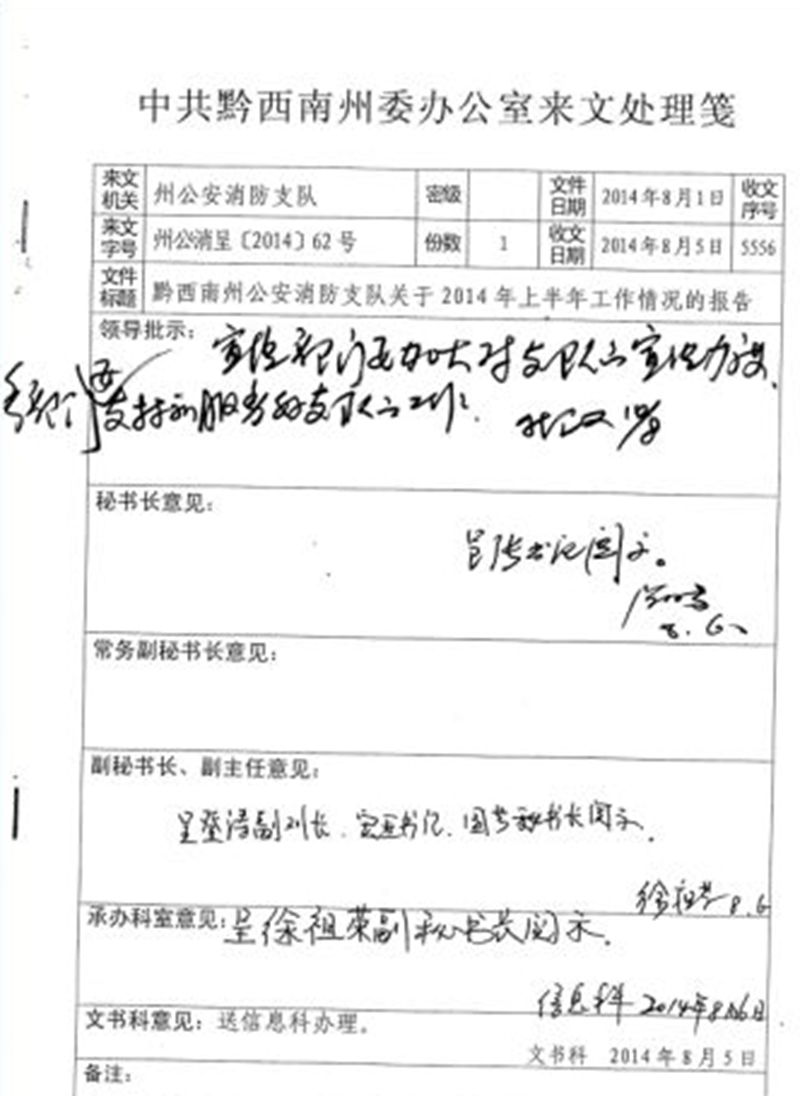 中共黔西南州委办公室来文处理笺
来文机关 州公安消防支队 密级 文件日期 2014年8月1日 收文序号
来文字号 州公消呈〔2014〕62号 份数 1 收文日期 2014年8月5日 5556
文件标题 黔西南州公安消防支队关于2014年上半年工作情况的报告
领导批示：宣传部门要加大对支队的宣传力度、
支持和服务好支队的工作。
秘书长意见：
呈张书记阅示。
8.6
常务副秘书长意见：
副秘书长、副主任意见：
书记、国芳秘书长阅示。
徐祖荣 8.6
承办科室意见：呈徐祖荣副秘书长阅示。
信息科 2014年8月6日
文书科意见：送信息科办理。
文书科 2014年8月5日
备注：